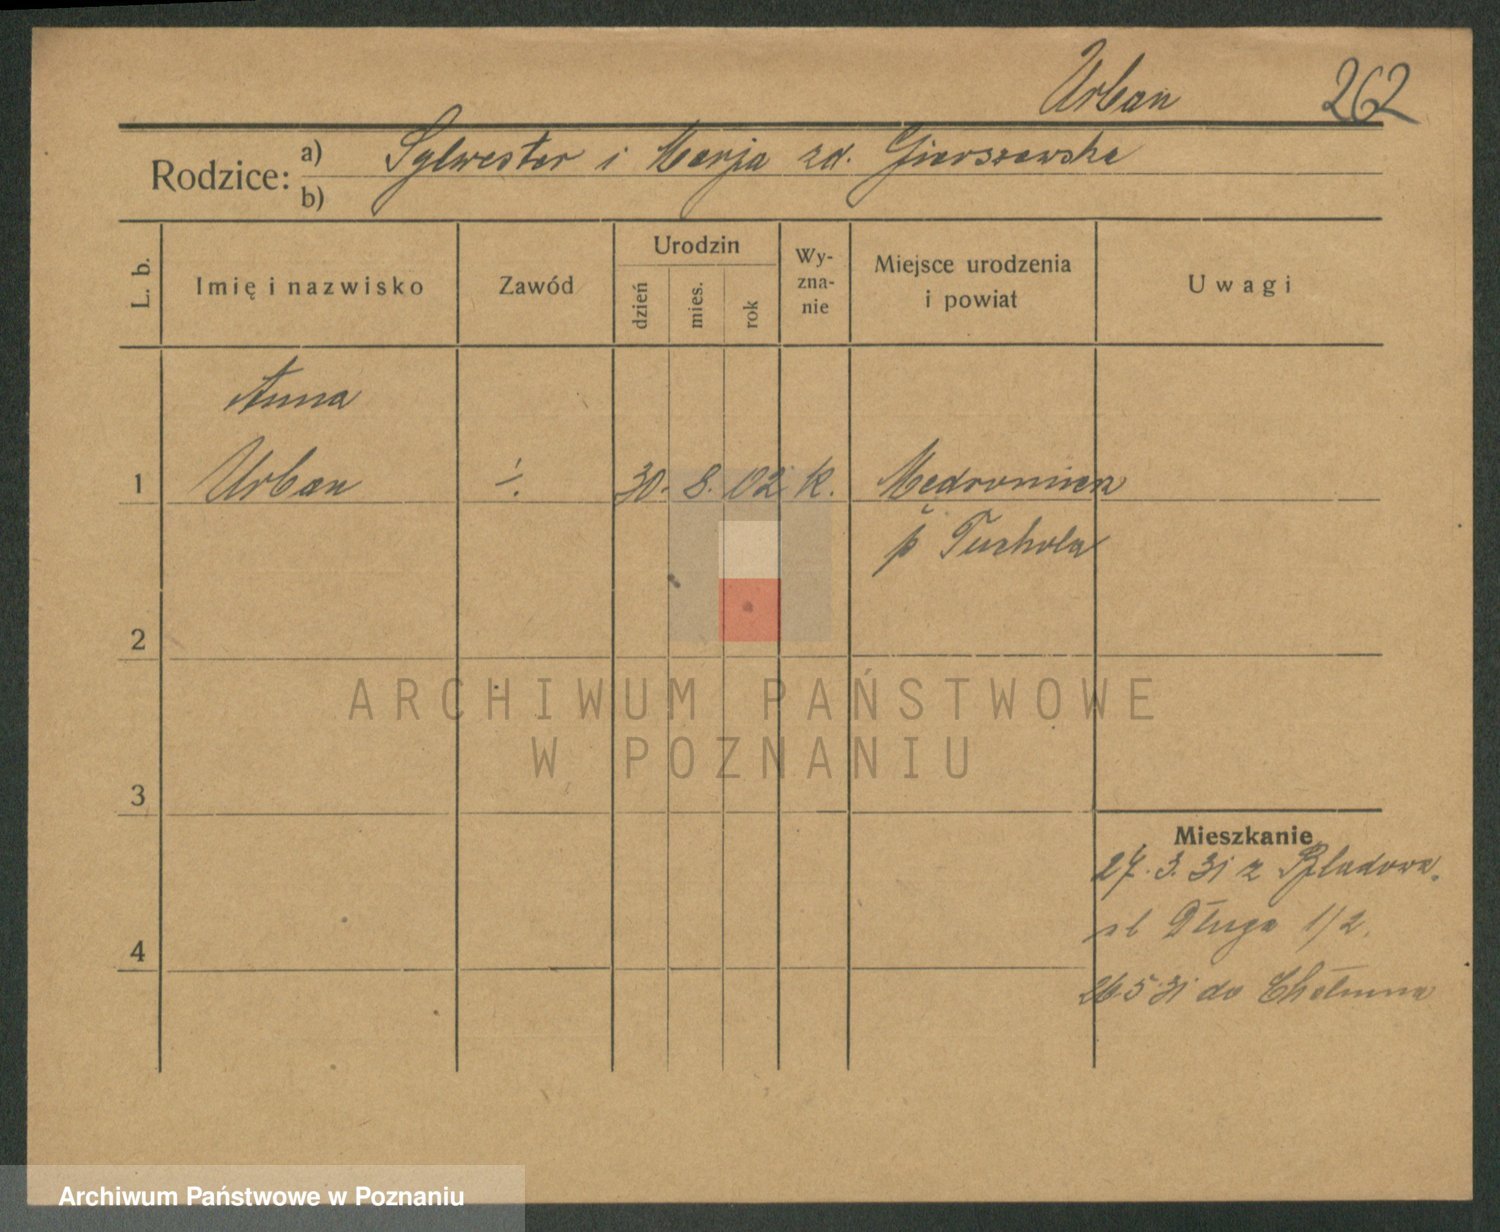 Urban 262
Rodzice: a) Sylwester i Marja zd. Gierszewska
b)
L. b. Imię i nazwisko Zawód Urodzin dzień mies. rok Wy-zna-nie Miejsce urodzenia i powiat Uwagi
Anna
1 Urban 30. 8. 02 k. Medromierz
p Tuchola
2
ARCHIWUM PAŃSTWOWE
W POZNANIU
3
Mieszkanie
27.3.31 z
ul Długa 1/2.
4
26.5.31 do Chełmna
Archiwum Państwowe w Poznaniu